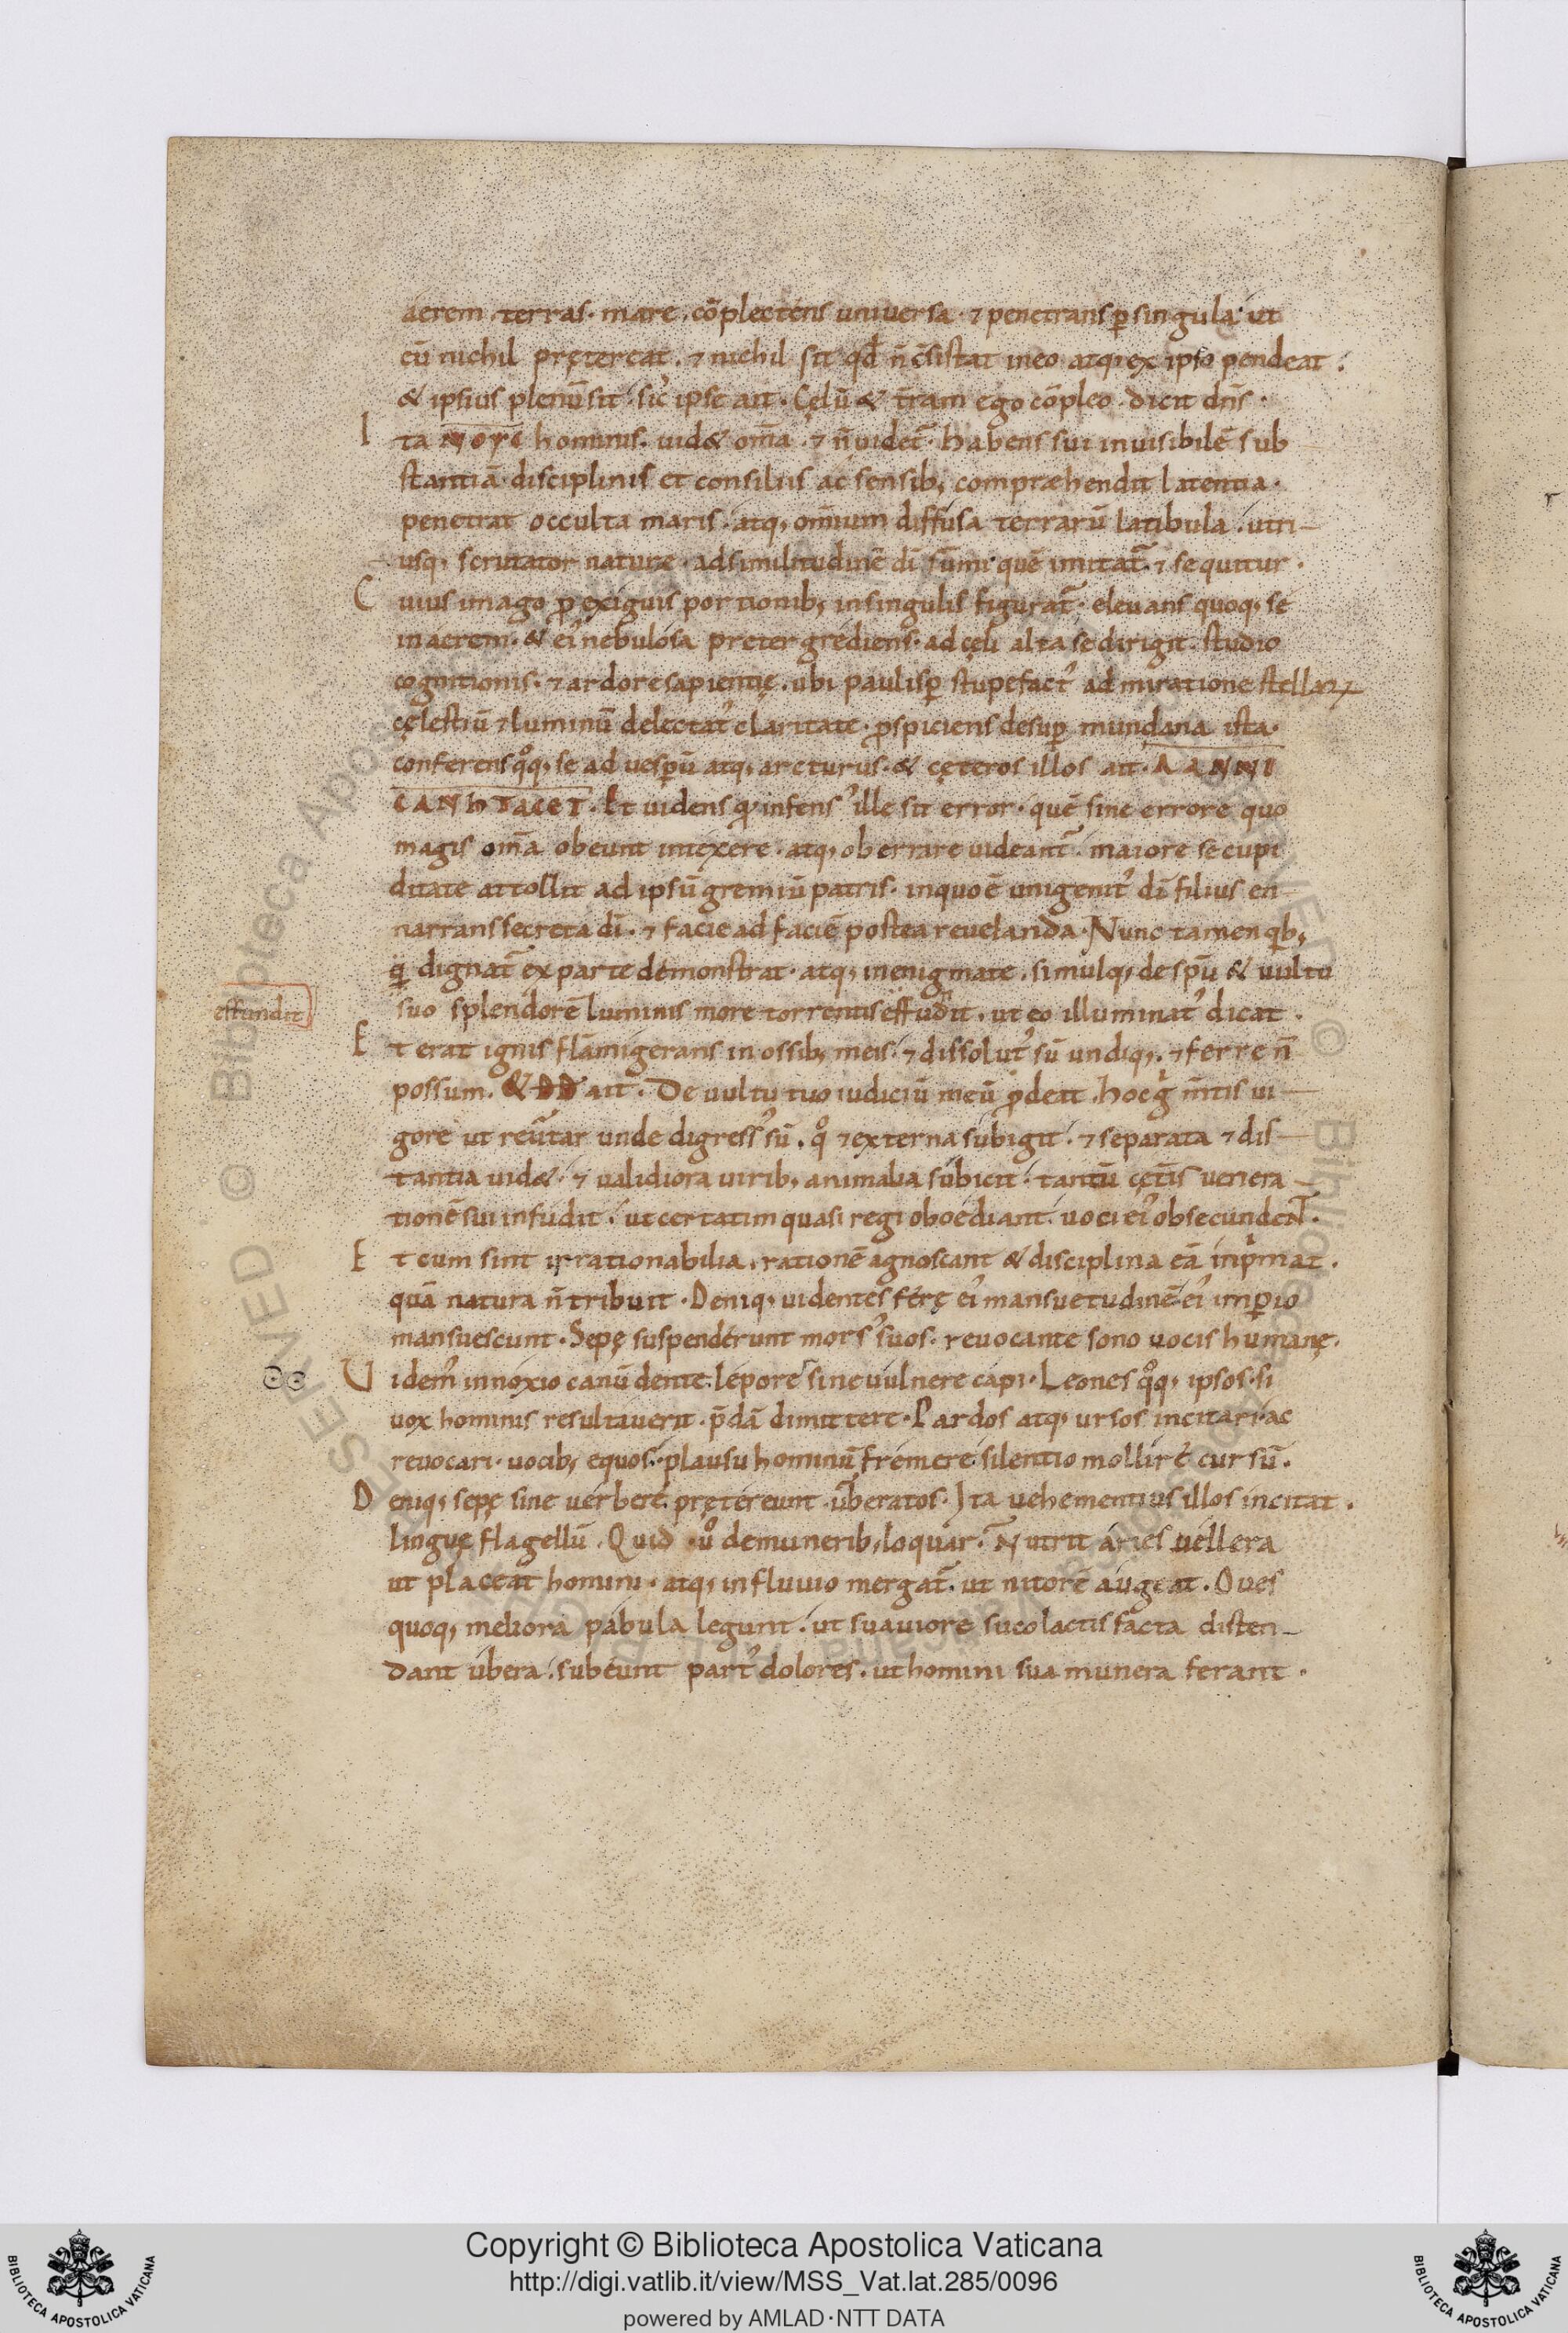 aerem . terras . mare . cōplectens universa . ⁊ penetrans p̱ singula ut
cū nichil pręteręat . ⁊ nichil sit qđ n̄ c̄sistat in eo atq; ex ipso pendeat .
& ipsius plenū sit . sic̓ ipse ait . Cęlū & t̄ram ego cōpleo dicit dn̄s .
Ita ΝΟΥC hominis . uid& om̄a . ⁊ n̄ uidet᷑ . habens sui inuisibilē sub
stantiā . disciplinis et consiliis ac sensib; compræhendit latentia .
penetrat occulta maris . atq; omnium diffusa terrarū latibula . utri
usq; scrutator naturæ . ad similitudinē dī sūmi quē imitat᷑ . ⁊ sequitur .
Cuius imago ꝑ exiguis portionib; in singulis figurat᷑ . eleuans quoq; se
in aerem . & ei᾿ nebulosa preter grediens . ad cęli alta se dirigit . studio
cognitionis . ⁊ ardore sapientię . ubi paulisp̱ stupefact᾿ admiratione stellaꝝ
cęlestiū ⁊ luminū delectat᾿ claritate . ꝓspiciens desup̱ mundana ista .
conferens qͦq; se ad uesp̱ū atq; arcturus . & cęteros illos ait . ΛΑΝΝΙ
CANhTACET . Et uidens qͣ infens᾿ ille sit error . quē sine errore quo
magis om̄a obeunt intexere . atq; oberrare uideant᷑ . maiore se cupi
ditate attollit ad ipsū gremiū patris . in quo ē unigenit᾿ dī filius en
narrans secreta dī . ⁊ facie ad faciē postea reuelanda . Nunc tamen qͥb;
qͥ dignat᷑ ex parte demonstrat . atq; in enigmate . simulq; de sp̄u & uultu
effundit
suo splendorē luminis more torrentis effudit . ut eo illuminat᾿ dicat .
Et erat ignis flāmigerans in ossib; meis . ⁊ dissolut᾿ sū undiq; . ⁊ ferre n̄
possum . & DD ait . De uultu tuo iudiciū meū ꝓdeat . hoc gͥ m̄tis ui
gore ut reūtar unde digress᾿ sū . qͦ ⁊ externa subigit . ⁊ separata ⁊ dis
tantia uid& . ⁊ ualidiora uirib; animalia subicit . tantū cęt̄is uenera
tionē sui infudit . ut certatim quasi regi oboediant . uoci ei᾿ obsecundent .
Et cum sint irrationabilia . rationē agnoscant & disciplina eā inpͥmat .
quā natura n̄ tribuit . Deniq; uidentes ferę ei᾿ mansuetudinē . ei᾿ imp̱io
mansuescunt . Sepę suspenderunt mors᾿ suos . reuocante sono uocis humanę .
Uidem᾿ innoxio canū dente lepores sine uulnere capi . Leones qͦq; ipsos . si
uox hominis resultauerit . p̄dā dimittere . Pardos atq; ursos incitari . ac
reuocari . uocib; equos . plausu hominū fremere . silentio mollire cursū .
Deniq; sepę sine uerbere pręterėunt ūberatos . Ita uehementius illos incitat .
linguę flagellū . Quid uͦ de munerib; loquar . Nutrit aries uellera
ut placeat homini . atq; in fluuio mergat᷑ . ut nitorē augeat . Oues
quoq; meliora pabula legunt . ut suauiore suco lactis facta disten
dant ubera . subeunt part᾿ dolores . ut homini sua munera ferant .
Copyright © Biblioteca Apostolica Vaticana
http://digi.vatlib.it/view/MSS_Vat.lat.285/0096
powered by AMLAD·NTT DATA
BIBLIOTECA APOSTOLICA VATICANA
BIBLIOTECA APOSTOLICA VATICANA